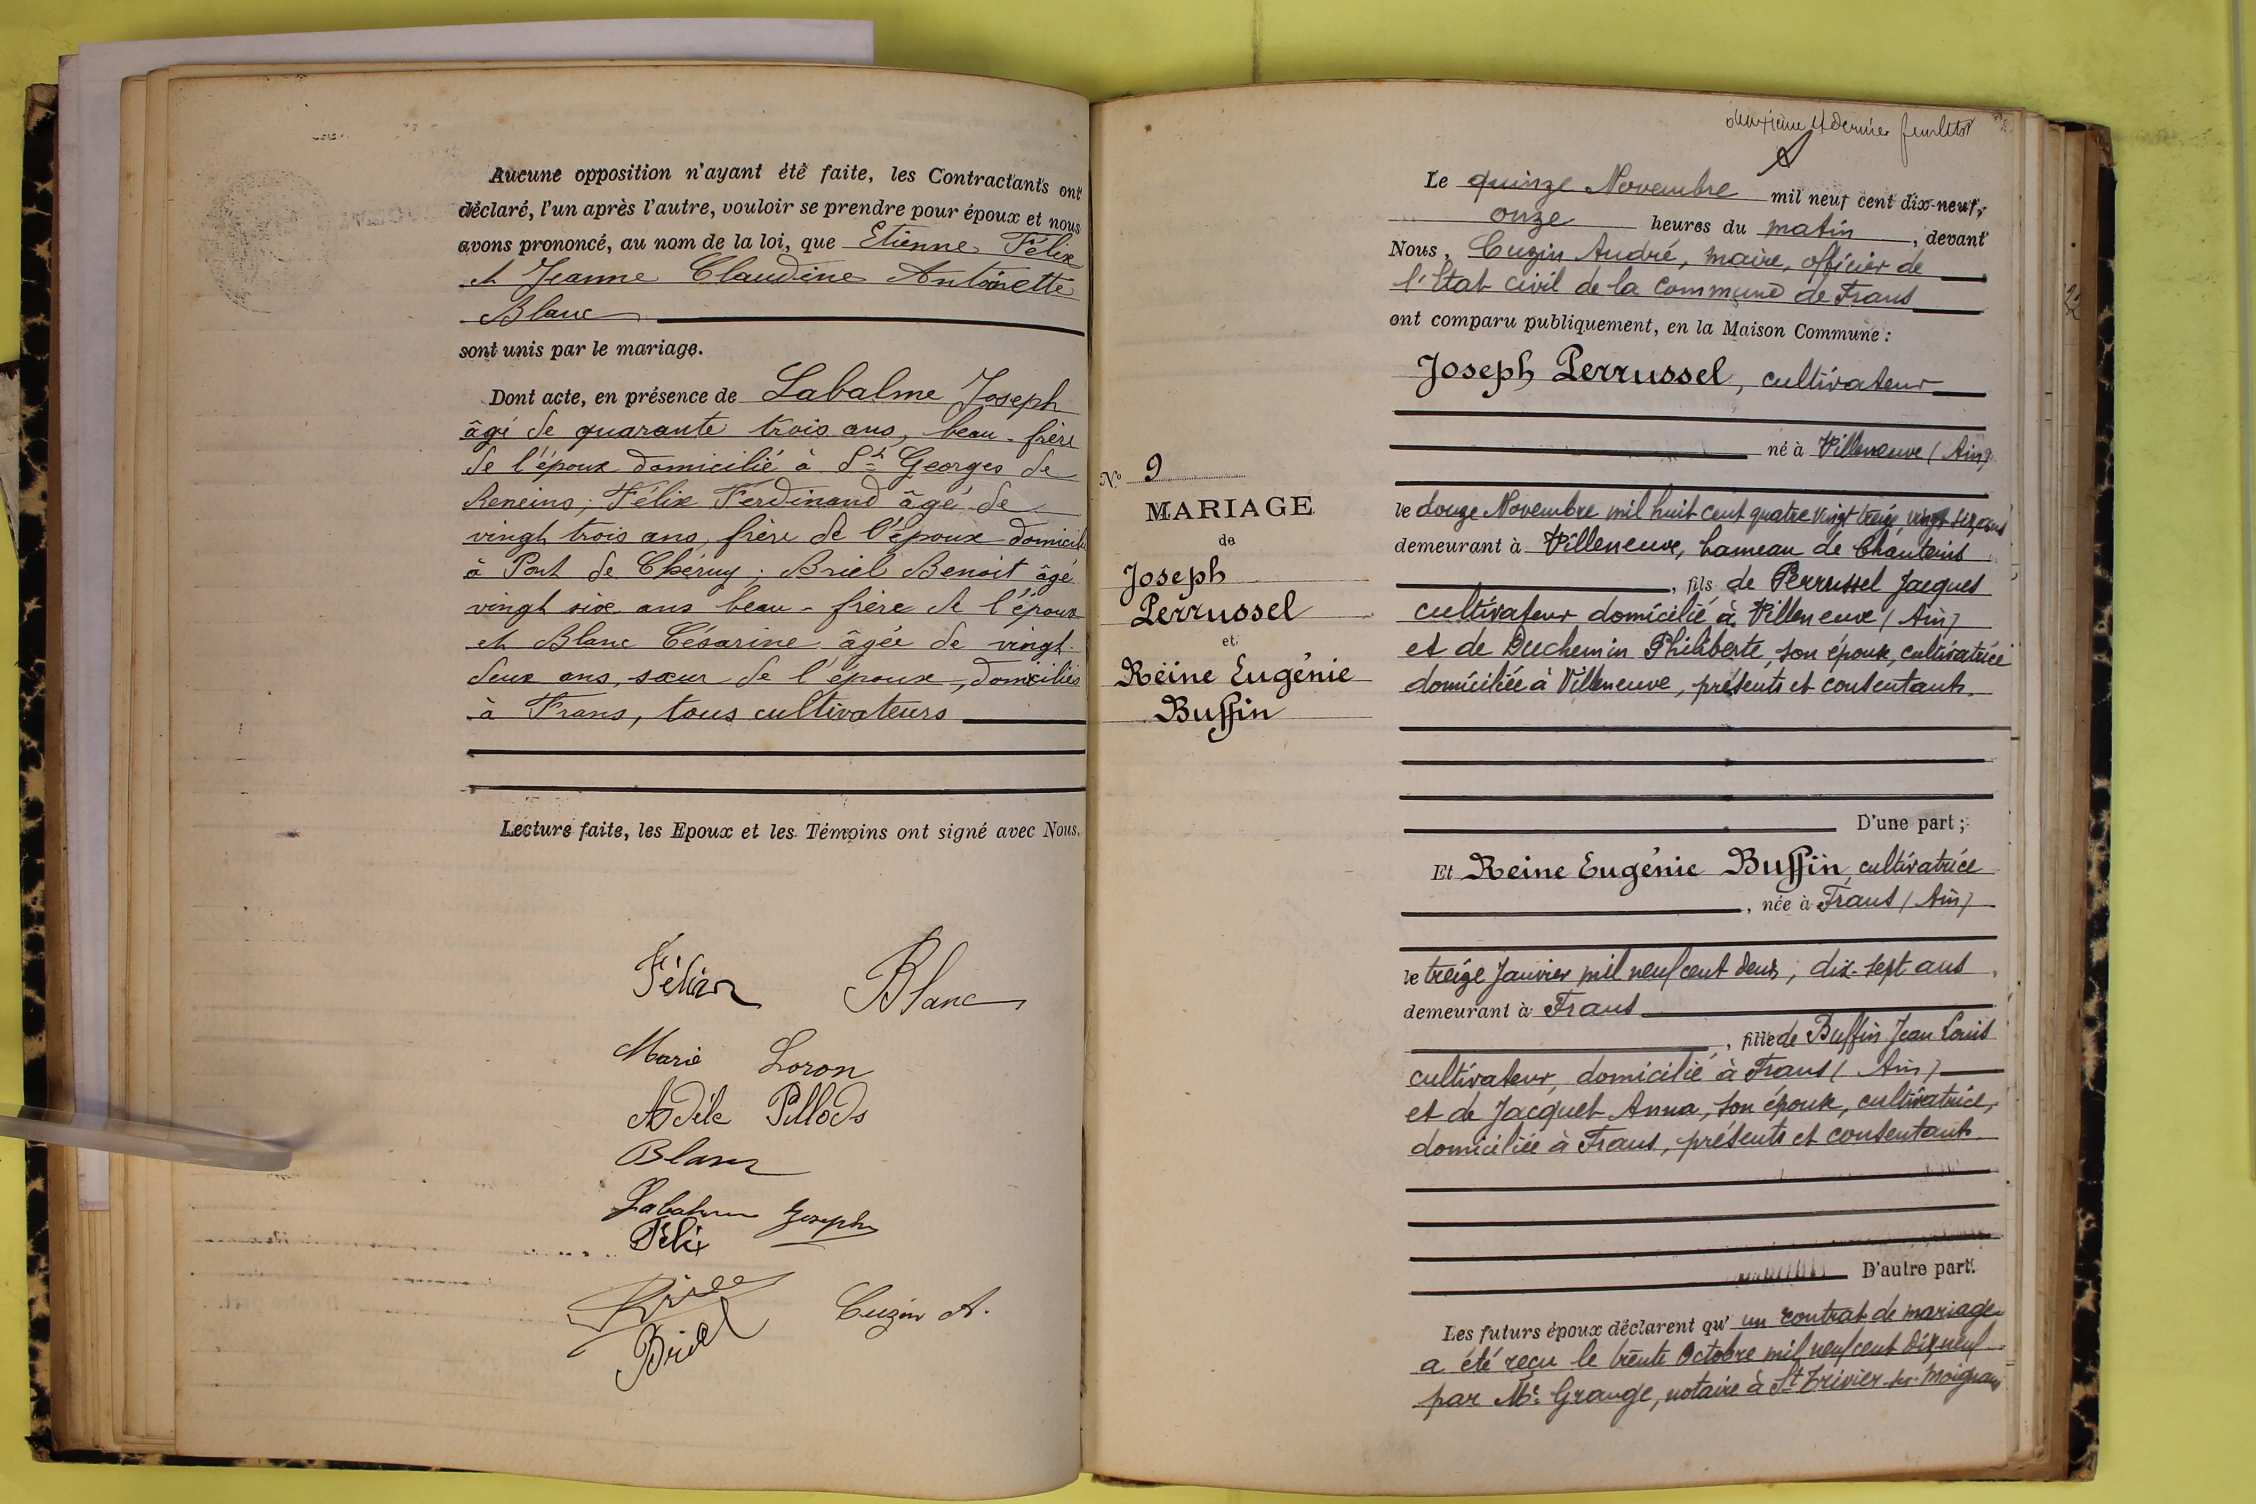 Aucune opposition n'ayant été faite, les Contractants ont
déclaré, l'un après l'autre, vouloir se prendre pour époux et nous
avons prononcé, au nom de la loi, que Etienne Félix
et Jeanne Claudine Antoinette
Blanc
sont unis par le mariage.
Dont acte, en présence de Labalme Joseph
âgé de quarante trois ans, beau-frère
de l'époux domicilié à St Georges de
Reneins; Félix Ferdinand âgé de
vingt trois ans, frère de l'époux domicilié
à Pont de Chéruy; Briel Benoit âgé
vingt six ans beau-frère de l'époux
et Blanc Césarine âgée de vingt
deux ans, sœur de l'épouse, domiciliés
à Frans, tous cultivateurs
Lecture faite, les Epoux et les Témoins ont signé avec Nous.
Félix Blanc
Marie Loron
Adèle Pillods
Blanc
Labalme Joseph
Félix
Briel
Cuzin A.
deuxième et dernier feuillet
Le quinze Novembre mil neuf cent dix-neuf,
onze heures du matin, devant
Nous, Cuzin André, maire, officier de
l'Etat civil de la commune de Frans
ont comparu publiquement, en la Maison Commune:
Joseph Perrussel, cultivateur
né à Villeneuve (Ain)
le douze Novembre mil huit cent quatre vingt treize, vingt six ans
demeurant à Villeneuve, hameau de Chanteins
, fils de Perrussel Jacques
cultivateur domicilié à Villeneuve (Ain)
et de Duchemin Philiberte, son épouse, cultivatrice
domiciliée à Villeneuve, présents et consentants.
D'une part;
Nº 9
MARIAGE
de
Joseph
Perrussel
et
Reine Eugénie
Buffin
Et Reine Eugénie Buffin, cultivatrice
, née à Frans (Ain)
le treize Janvier mil neuf cent deux, dix-sept ans
demeurant à Frans
, fille de Buffin Jean Louis
cultivateur, domicilié à Frans (Ain)
et de Jacquet Anna, son épouse, cultivatrice,
domiciliée à Frans, présents et consentants.
D'autre part.
Les futurs époux déclarent qu'un contrat de mariage
a été reçu le trente Octobre mil neuf cent dix neuf
par Me Grange, notaire à St Trivier sur Moignans